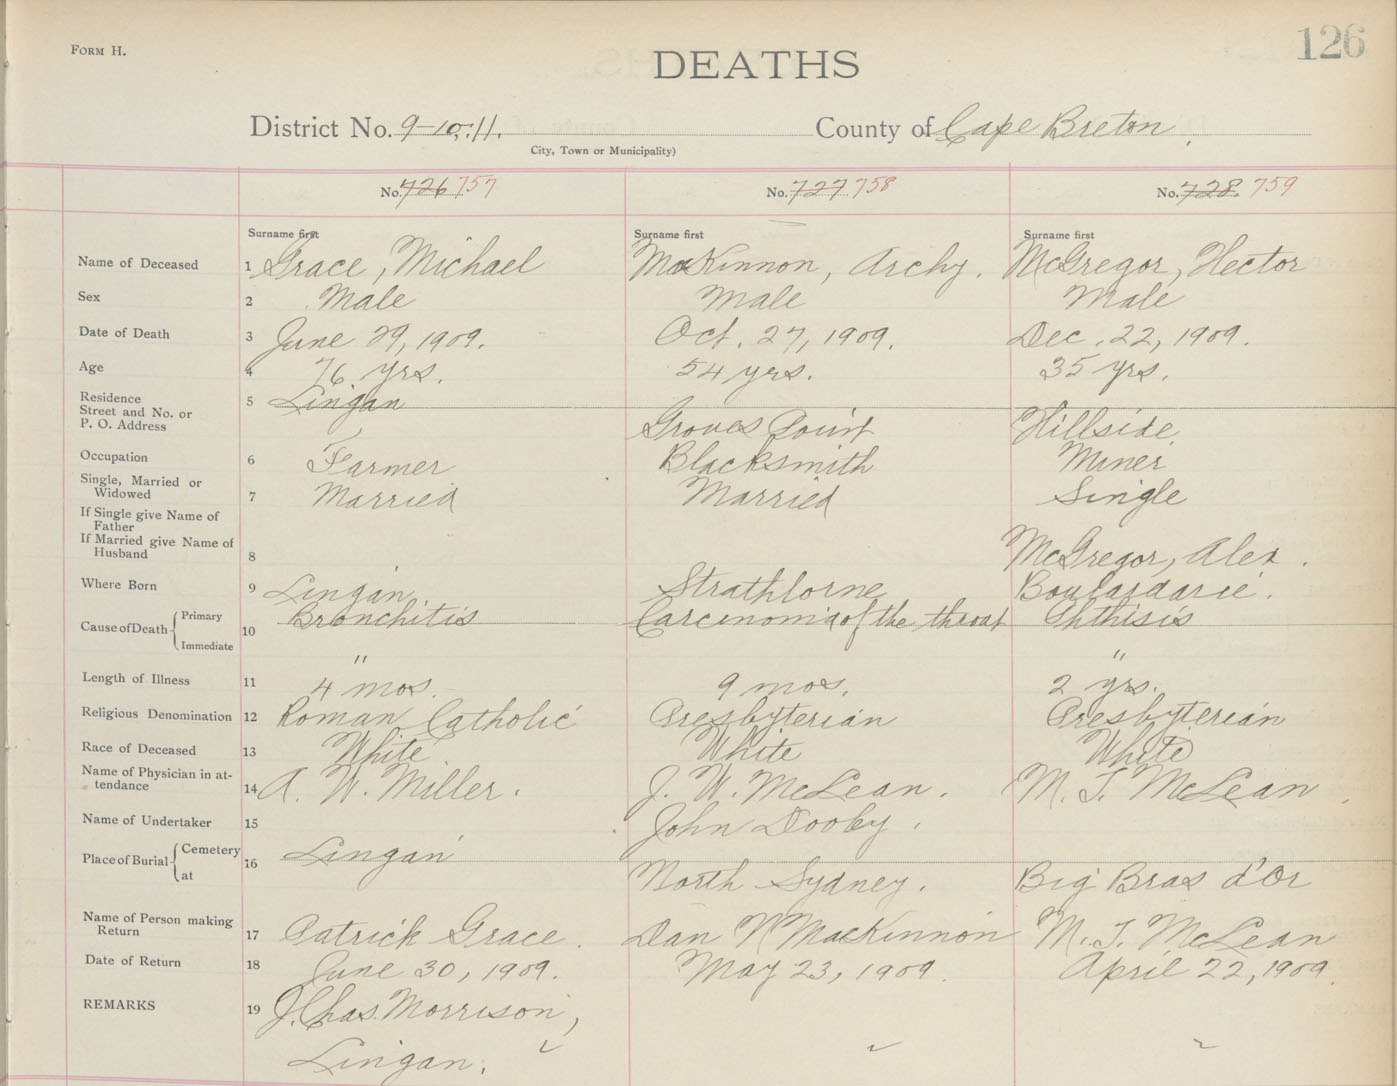 FORM H.
126
DEATHS
District No. 9-10, 11. County of Cape Breton
City, Town or Municipality)
No. 726 757 No. 727 758 No. 728. 759
Surname first Surname first Surname first
Name of Deceased 1 Grace, Michael MacKinnon, Archy. McGregor, Hector
Sex 2 Male Male Male
Date of Death 3 June 29, 1909. Oct. 27, 1909. Dec. 22, 1909.
Age 4 76 yrs. 54 yrs. 35 yrs.
Residence 5 Lingan
Street and No. or
P. O. Address Groves Point Hillside
Occupation 6 Farmer Blacksmith Miner
Single, Married or
Widowed 7 Married Married Single
If Single give Name of
Father
If Married give Name of
Husband 8 McGregor, Alex.
Where Born 9 Lingan. Strathlorne Boulardarie.
Cause of Death Primary 10 Bronchitis Carcinoma of the throat Phthisis
Immediate " "
Length of Illness 11 4 mos. 9 mos. 2 yrs.
Religious Denomination 12 Roman Catholic Presbyterian Presbyterian
Race of Deceased 13 White White White
Name of Physician in at-
tendance 14 A. W. Miller. J. W. McLean. M. T. McLean
Name of Undertaker 15 John Dooby.
Place of Burial Cemetery 16 Lingan
at North Sydney. Big Bras d'Or
Name of Person making
Return 17 Patrick Grace. Dan N MacKinnon M. T. McLean
Date of Return 18 June 30, 1909. May 23, 1909. April 22, 1909.
REMARKS 19 J. Chas. Morrison,
Lingan.